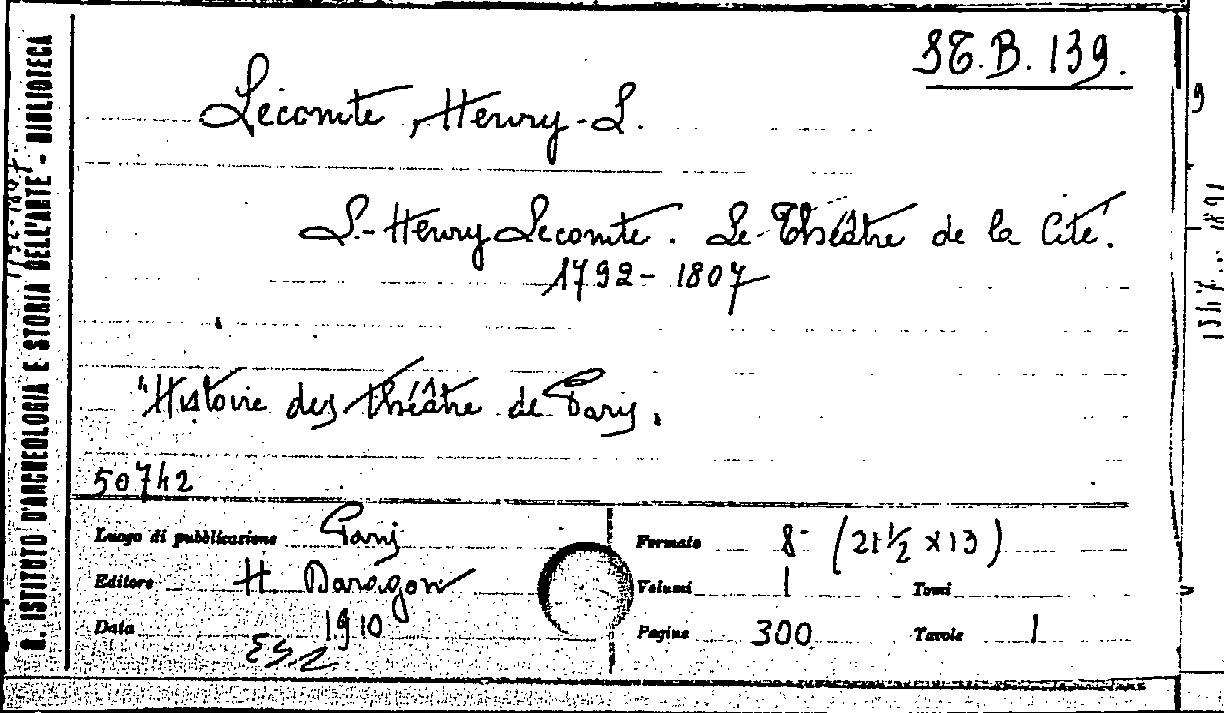 ST.B. 139.
Lecomte, Henry-L.
L.-Henry Lecomte. Le Théâtre de la Cité.
1792-1807
"Histoire des théâtre de Paris.
50742
Luogo di pubblicazione Paris
Editore H. Daragon
Data 1910
Formato 8° (21 1/2 x 13)
Volumi 1 Tomi
Pagine 300 Tavole 1
R. ISTITUTO D'ARCHEOLOGIA E STORIA DELL'ARTE - BIBLIOTECA